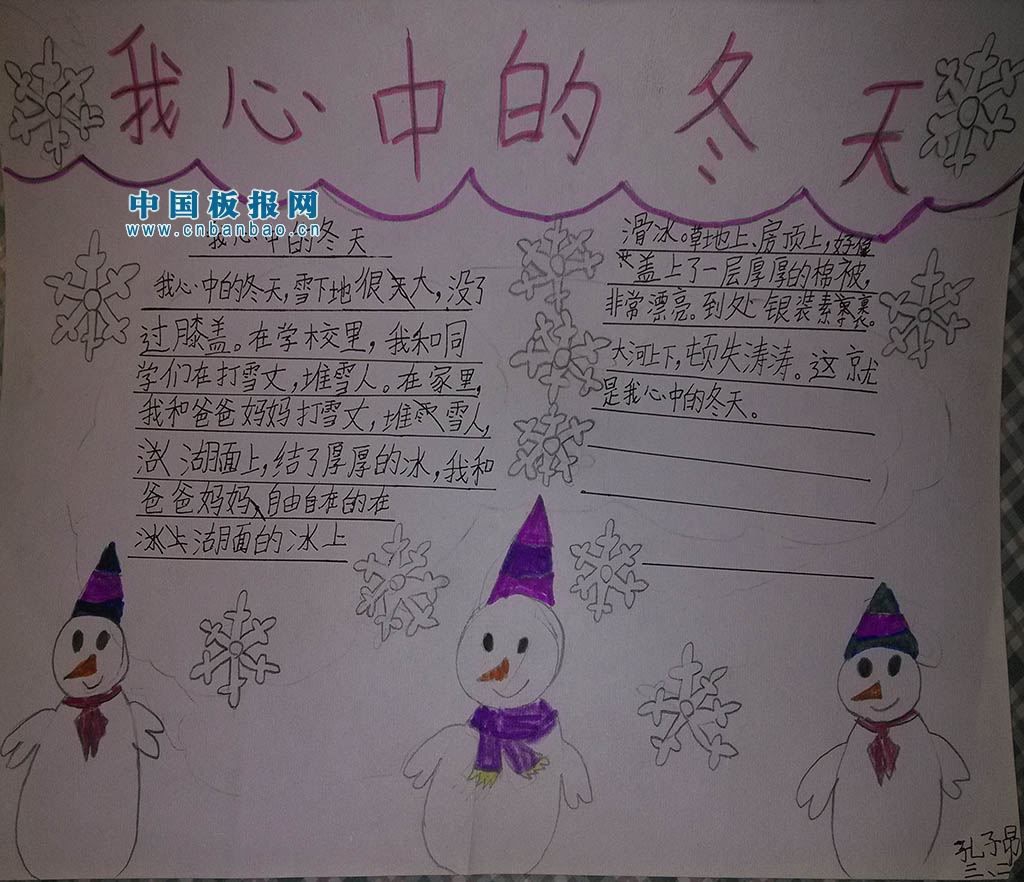 我心中的冬天
中国板报网
www.cnbanbao.cn
我心中的冬天
我心中的冬天，雪下地很大，没了
过膝盖。在学校里，我和同
学们在打雪丈，堆雪人。在家里，
我和爸爸妈妈打雪丈，堆雪人，
湖面上，结了厚厚的冰，我和
爸爸妈妈自由自在的在
湖面的冰上
滑冰。草地上、房顶上，好像
盖上了一层厚厚的棉被，
非常漂亮。到处银装素裹。
大河上下，顿失涛涛。这就
是我心中的冬天。
孔子昂
三、二